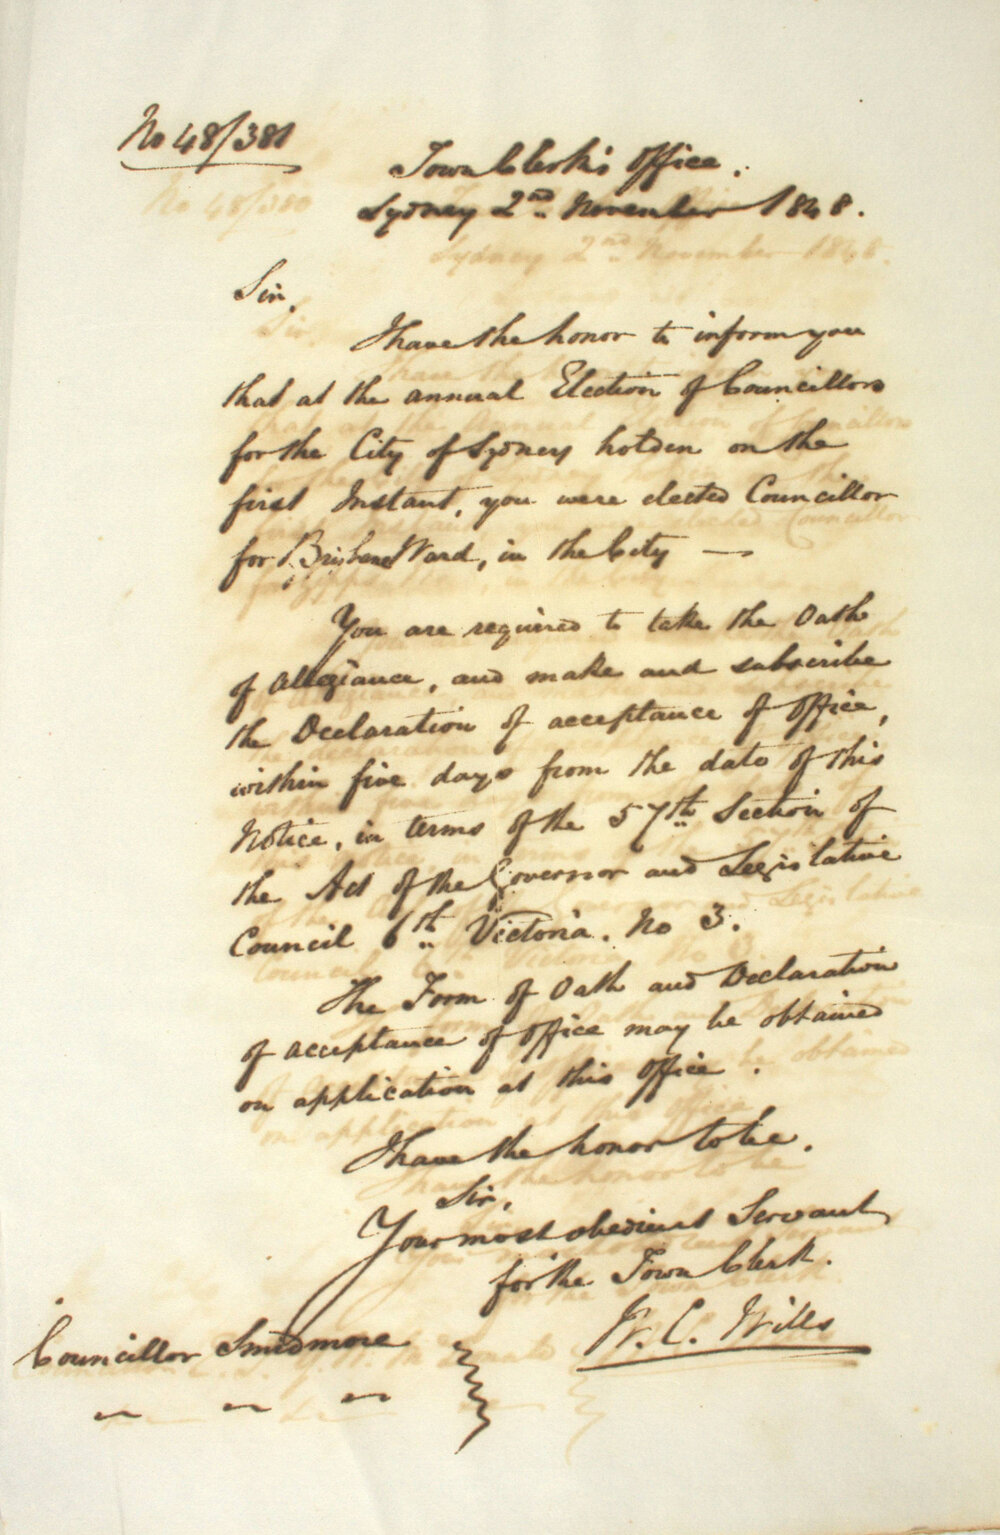 No 48/381
Town Clerk's Office.
Sydney 2nd November 1848.
Sir,
I have the honor to inform you
that at the annual Election of Councillors
for the City of Sydney holden on the
first Instant, you were elected Councillor
for Brisbane Ward, in the City —
You are required to take the Oath
of Allegiance, and make and subscribe
the Declaration of acceptance of office,
within five days from the date of this
Notice, in terms of the 57th Section of
the Act of the Governor and Legislative
Council 6th Victoria. No 3.
The Form of Oath and Declaration
of acceptance of office may be obtained
on application at this Office.
I have the honor to be.
Sir,
Your most obedient Servant
for the Town Clerk.
W. C. Wills
Councillor Smidmore